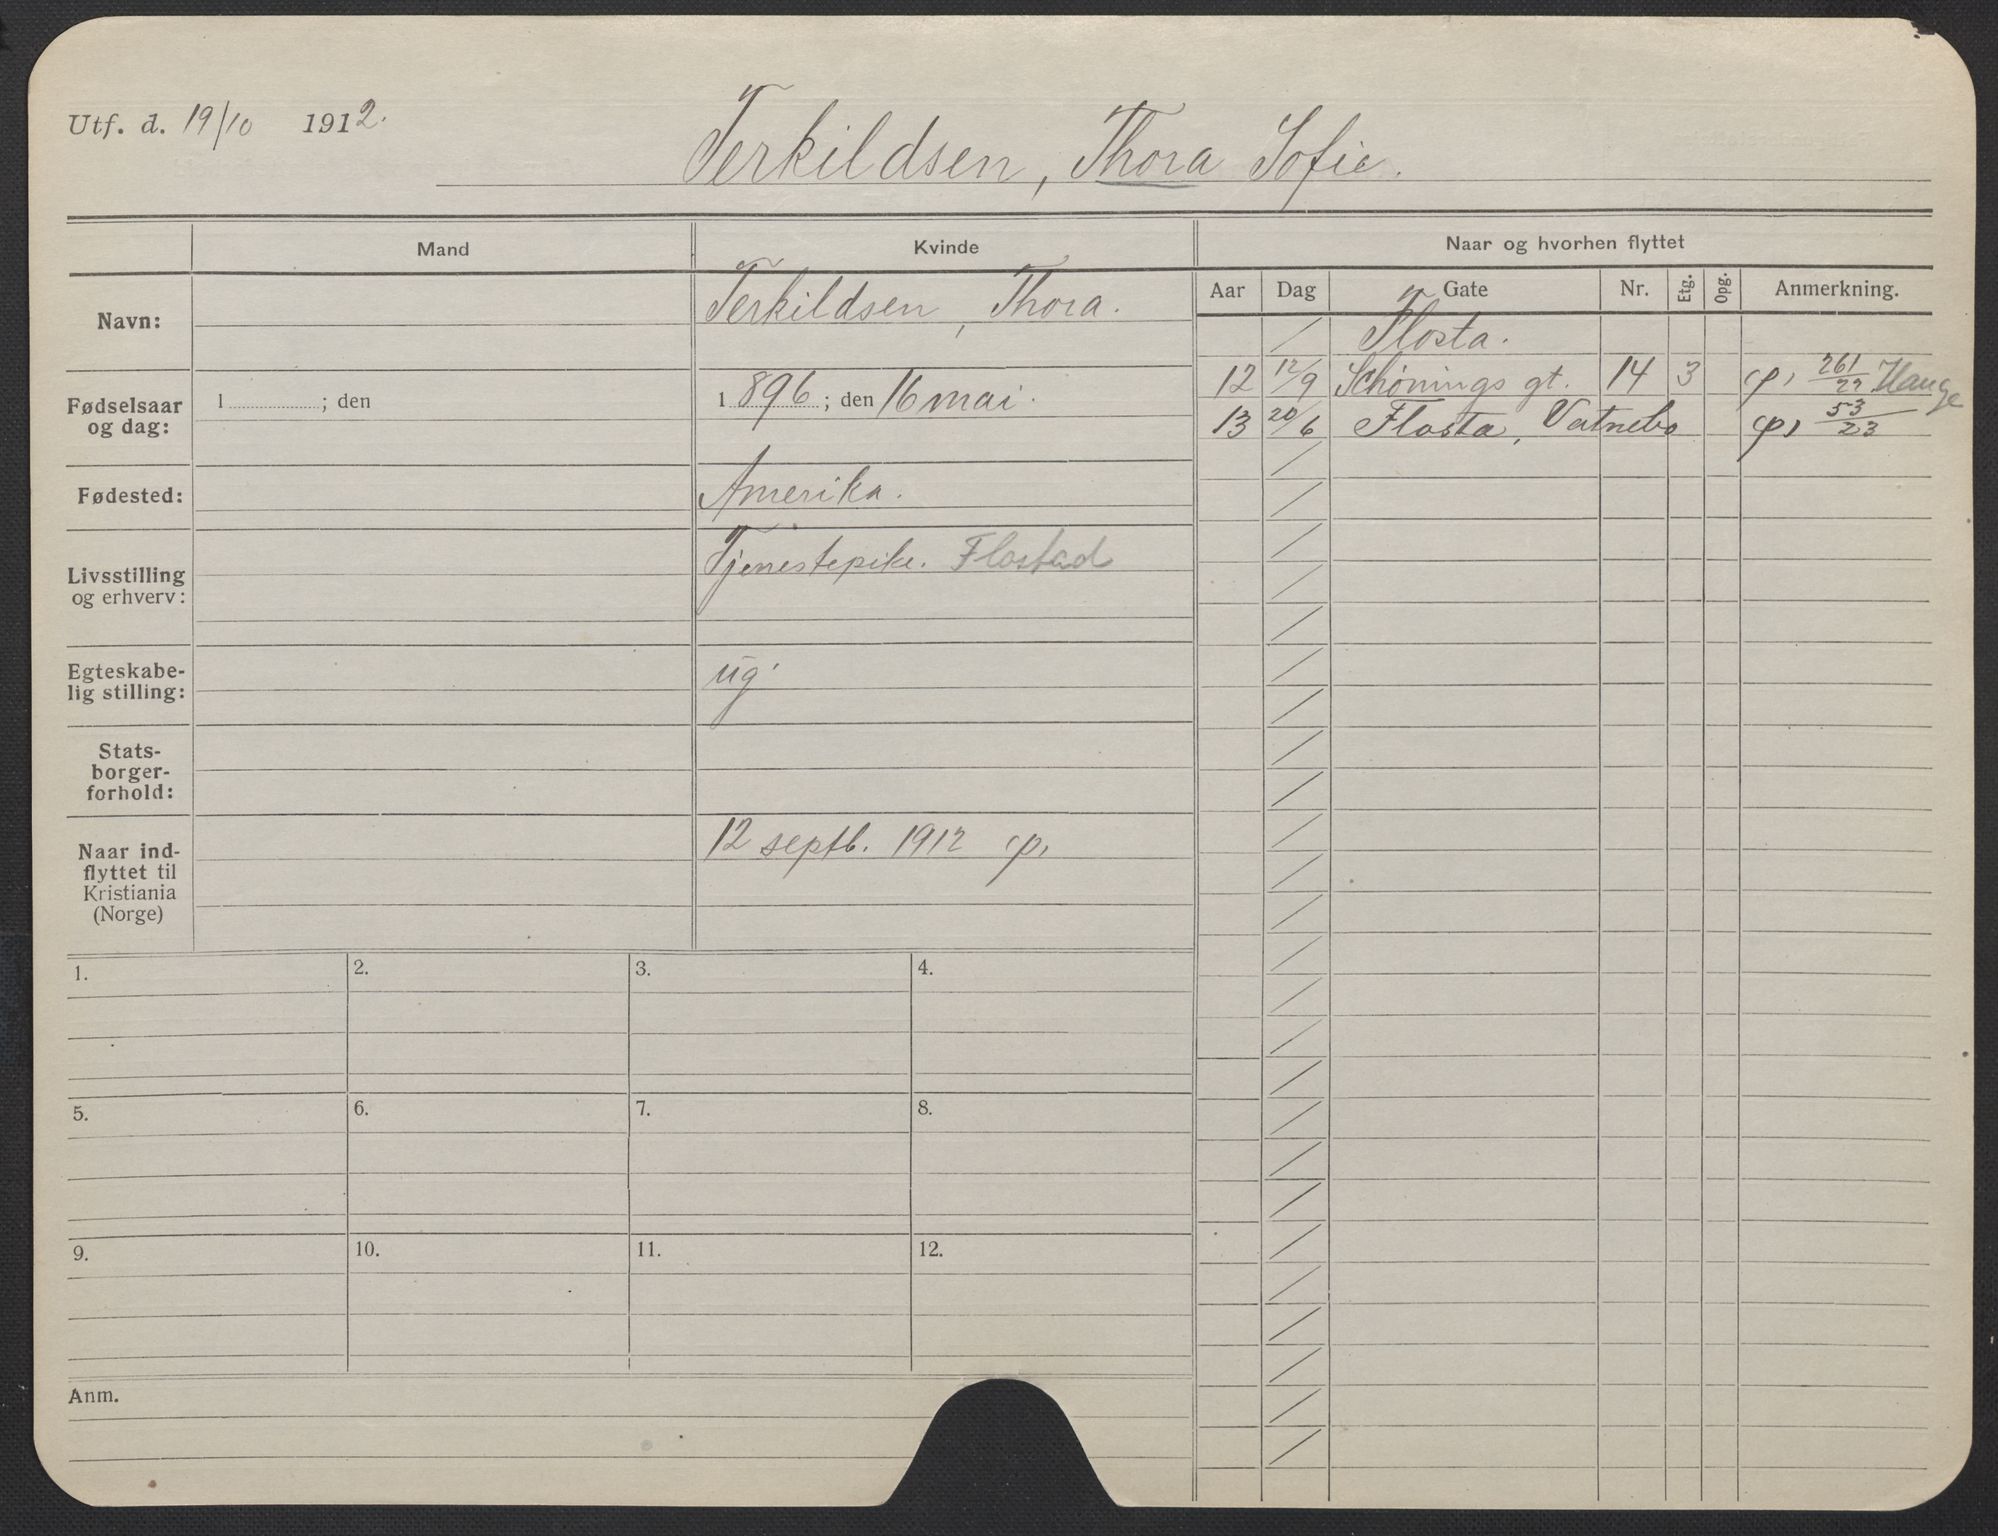 Utf. d. 19/10 1912.
Terkildsen, Thora Sofie.
Mand
Kvinde
Naar og hvorhen flyttet
Navn:
Terkildsen, Thora.
Aar Dag Gate Nr. Etg. Opg. Anmerkning.
/ Flosta.
12 12/9 Schönings gt. 14 3 261/22 Hauge
13 20/6 Flosta, Vatnebo 53/23
Fødselsaar
og dag:
1 ; den
1896 ; den 16 mai.
Fødested:
Amerika.
Livsstilling
og erhverv:
Tjenestepike. Flostad
Egteskabe-
lig stilling:
ug.
Stats-
borger-
forhold:
Naar ind-
flyttet til
Kristiania
(Norge)
12 septb. 1912
1. 2. 3. 4.
5. 6. 7. 8.
9. 10. 11. 12.
Anm.